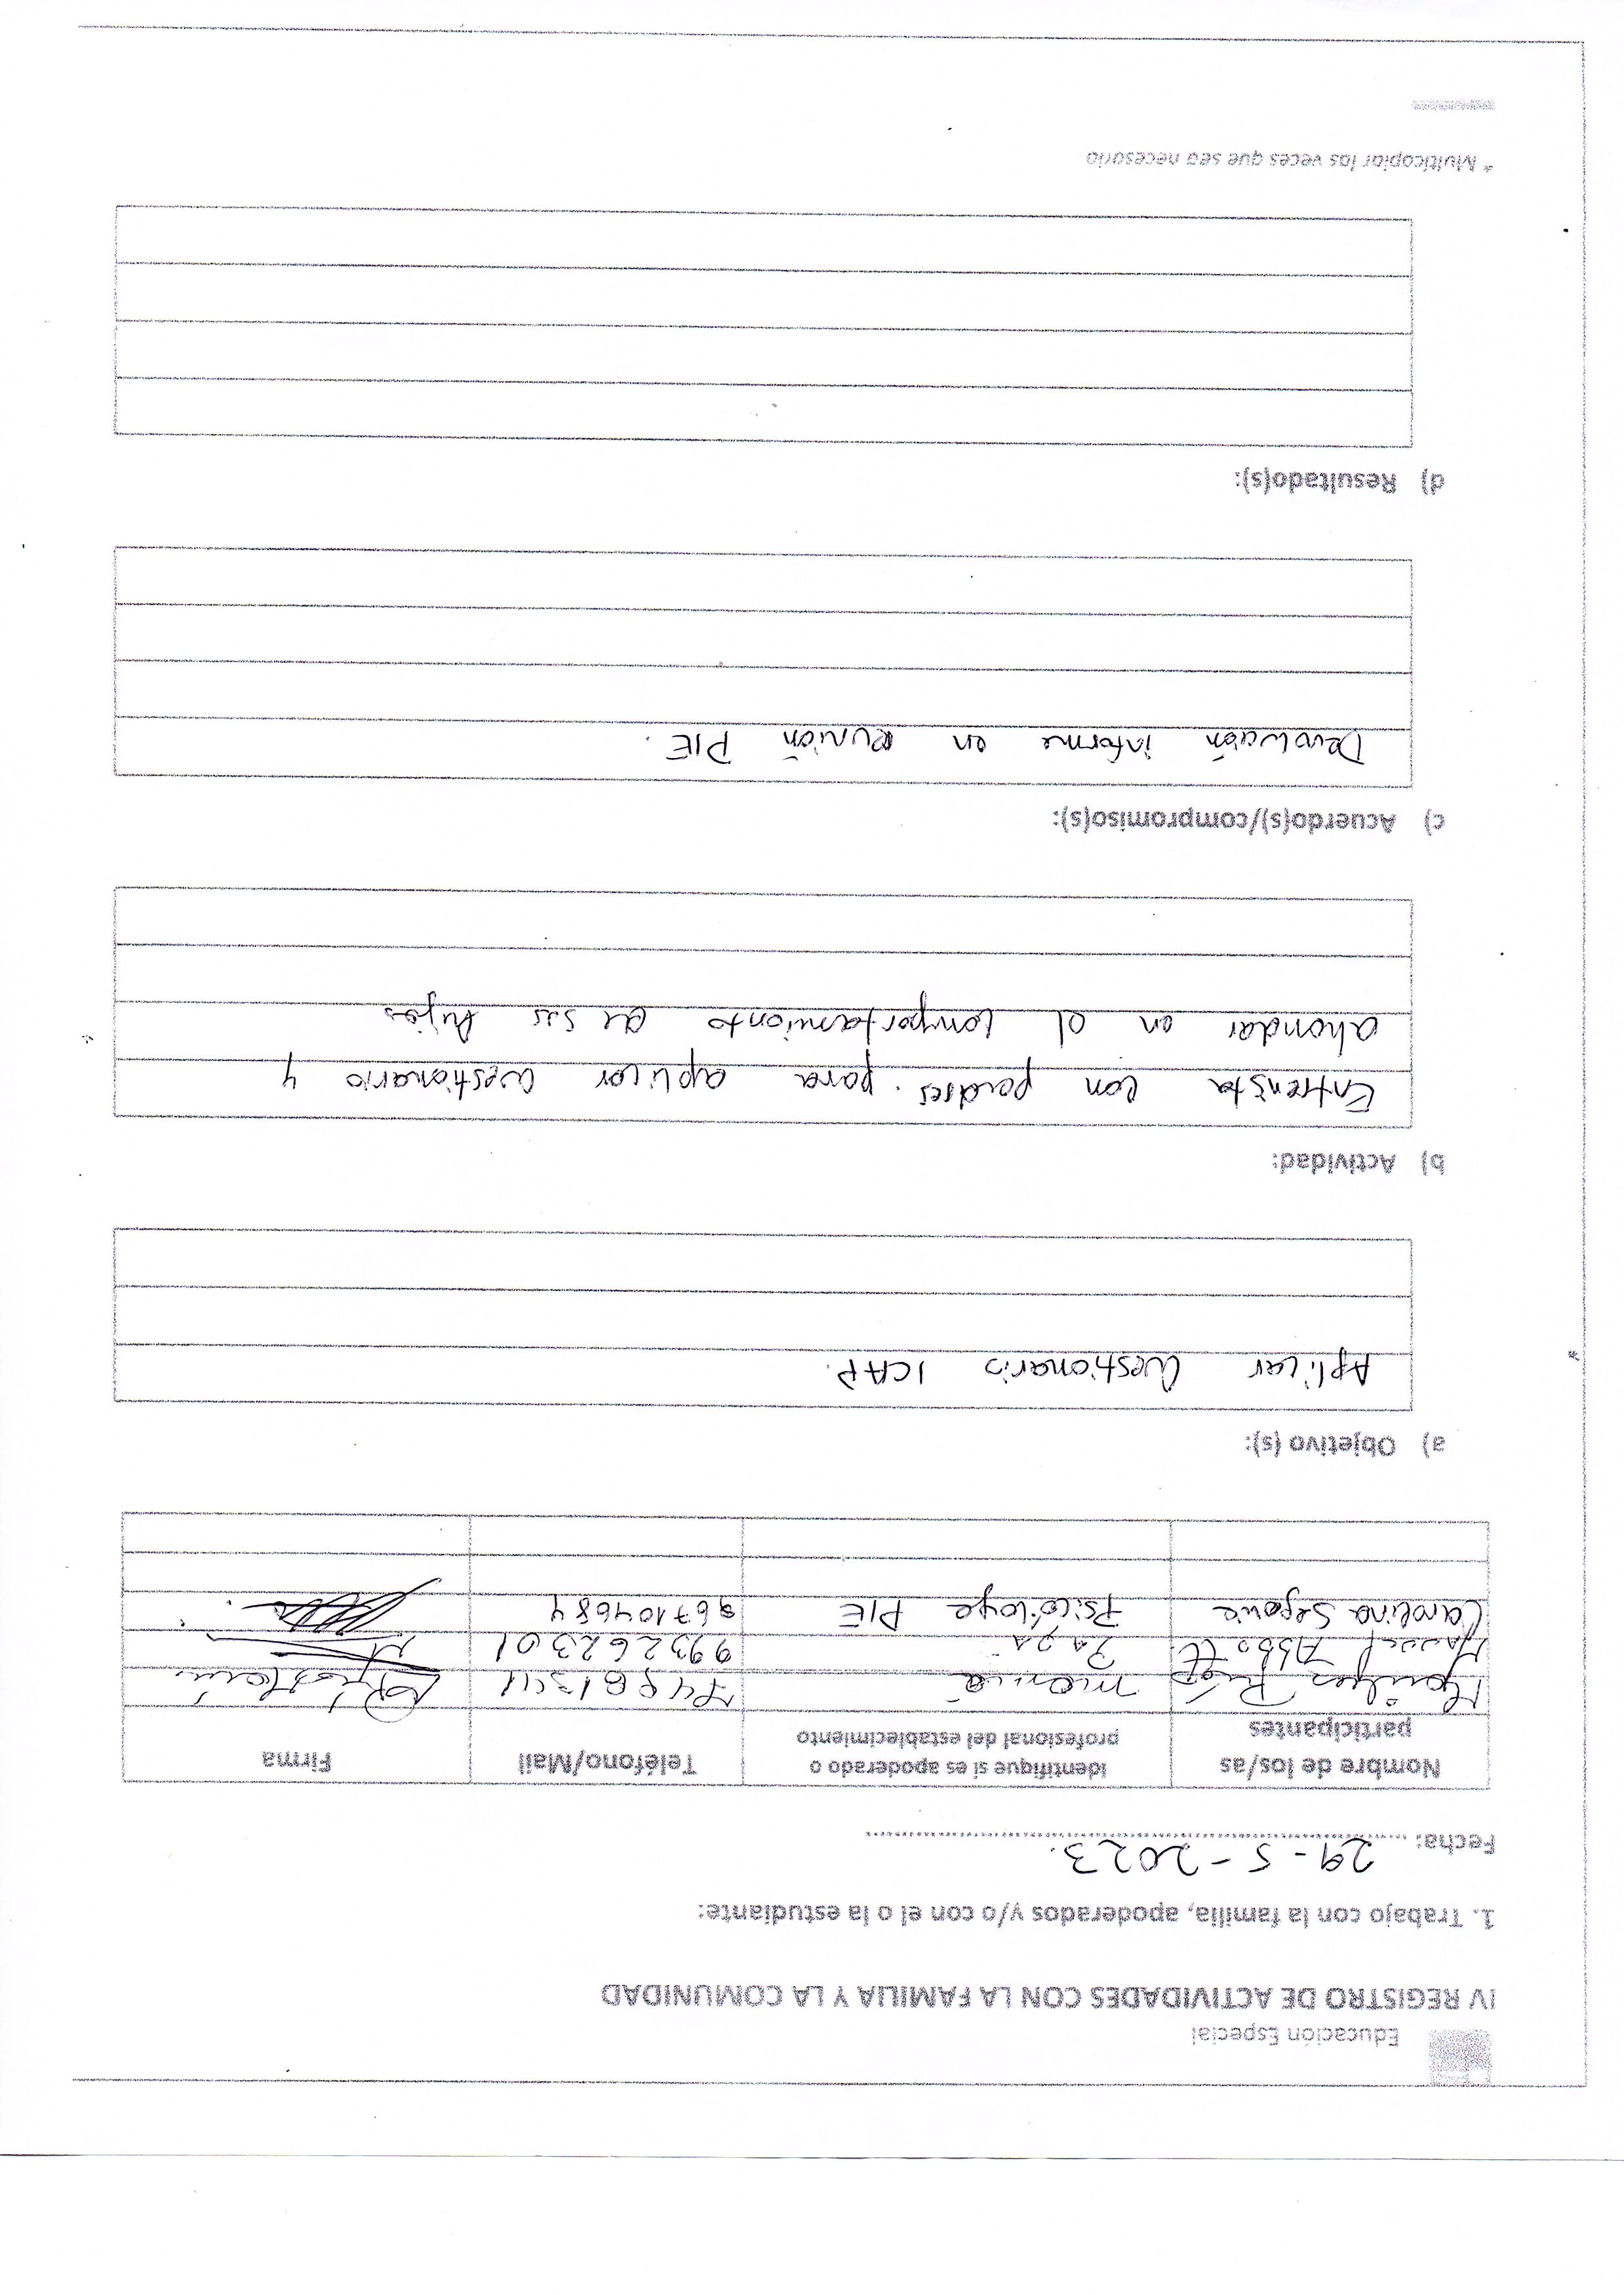 Educación Especial
IV REGISTRO DE ACTIVIDADES CON LA FAMILIA Y LA COMUNIDAD
1. Trabajo con la familia, apoderados y/o con el o la estudiante:
Fecha: 29-5-2023.
Nombre de los/as participantes Identifique si es apoderado o profesional del establecimiento Teléfono/Mail Firma
mamá
Papá 993262301
Carolina Segovia Psicóloga PIE 967104684
a) Objetivo (s):
Aplicar Cuestionario ICAP.
b) Actividad:
Entrevista con padres. para aplicar cuestionario y
ahondar en el comportamiento de sus hijos
c) Acuerdo(s)/compromiso(s):
Devolución informe en reunión PIE.
d) Resultado(s):
* Multicopiar las veces que sea necesario